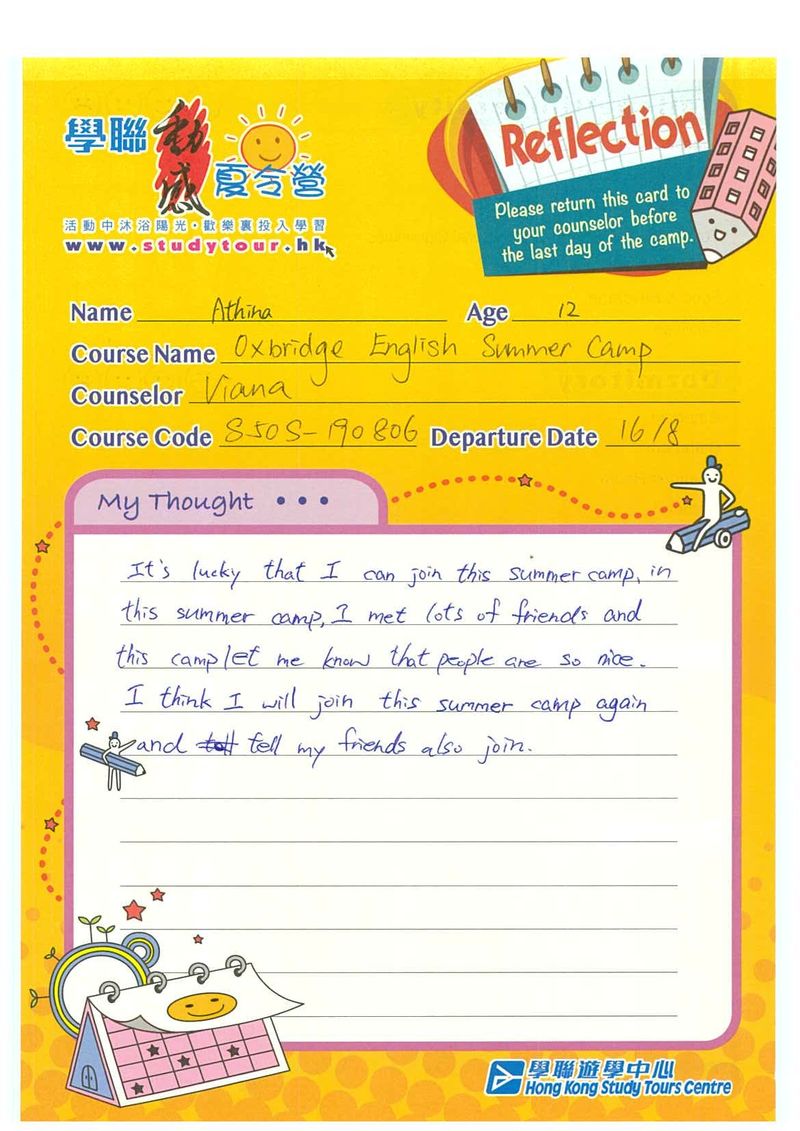 學聯 動感 夏令營
活動中沐浴陽光·歡樂裏投入學習
www.studytour.hk
Reflection
Please return this card to
your counselor before
the last day of the camp.
Name Athina Age 12
Course Name Oxbridge English Summer Camp
Counselor Viana
Course Code S50S-190806 Departure Date 16/8
My Thought • • •
It's lucky that I can join this summer camp, in
this summer camp, I met lots of friends and
this camp let me know that people are so nice.
I think I will join this summer camp again
and tell my friends also join.
學聯遊學中心
Hong Kong Study Tours Centre